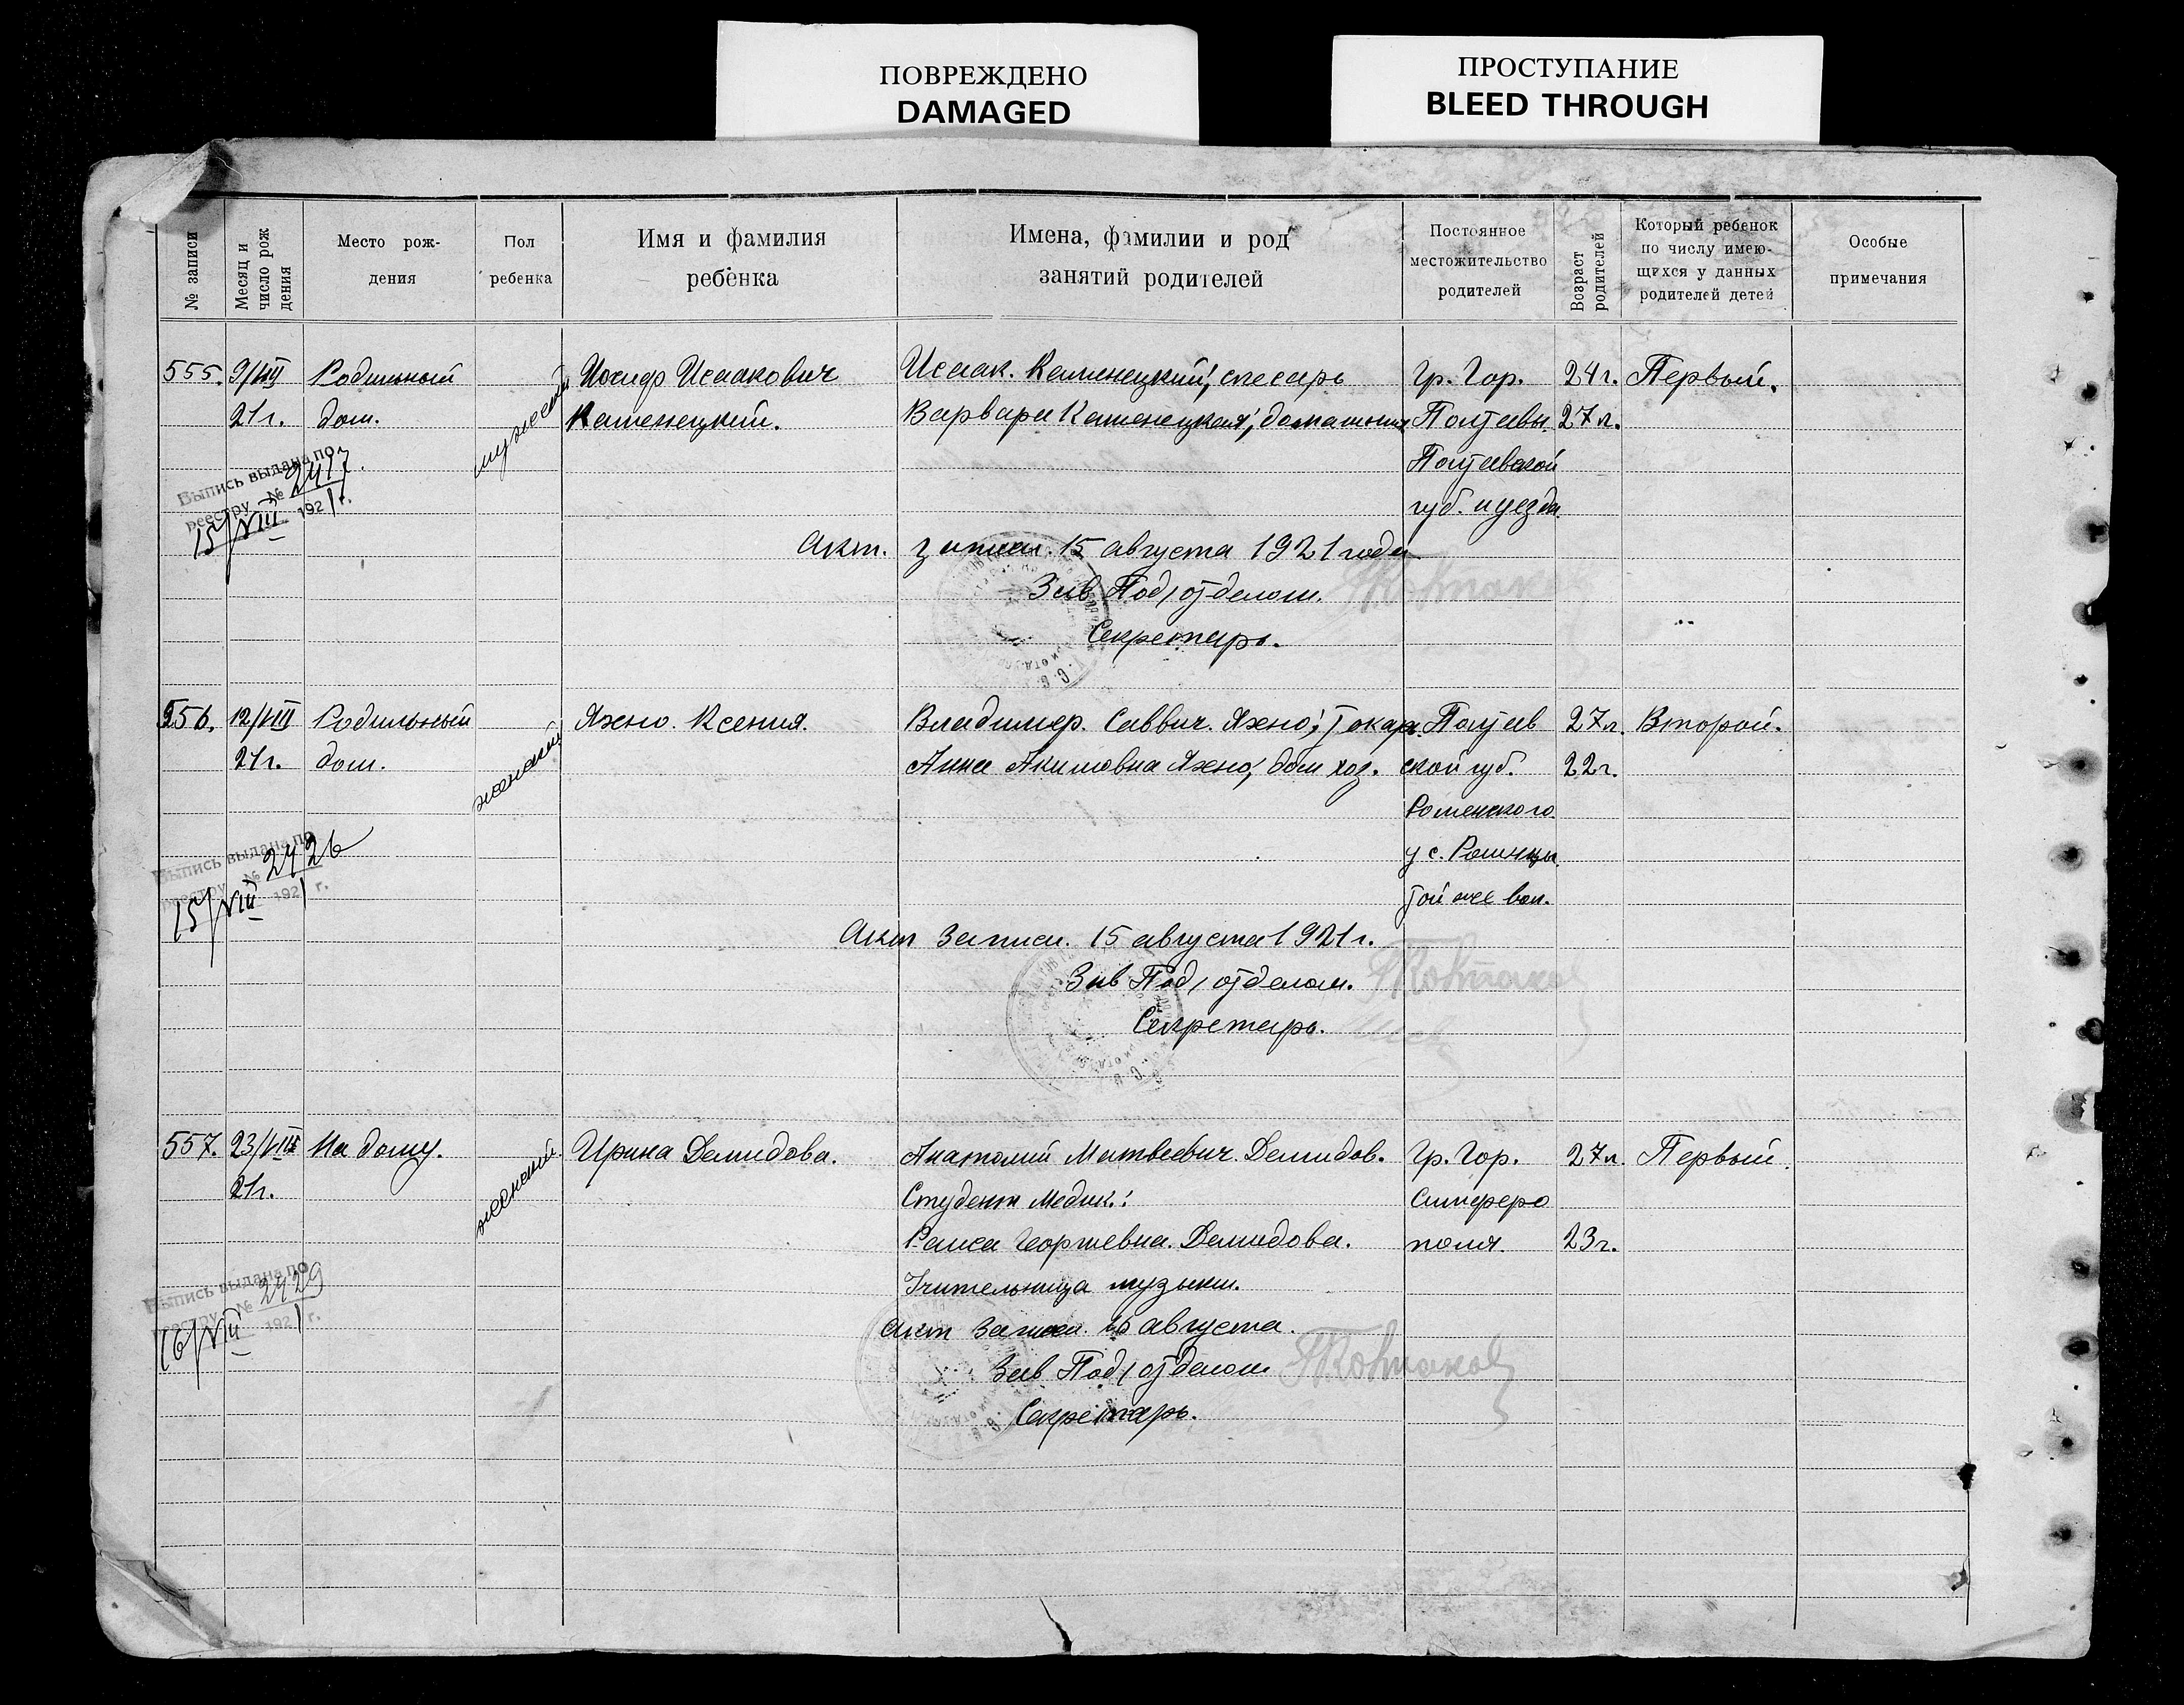 ПОВРЕЖДЕНО
DAMAGED
ПРОСТУПАНИЕ
BLEED THROUGH
№ записи
Месяц и
число рож
дения
Место рож-
дения
Пол
ребенка
Имя и фамилия
ребенка
Имена, фамилии и род
занятий родителей
Постоянное
местожительство
родителей
Возраст
родителей
Который ребенок
по числу имею-
щихся у данных
родителей детей
Особые
примечания
555. 9/VIII Родильный мужской Иосиф Исаакович Исаак. Каменецкий, слесарь Гр. Гор. 24 г. Первый.
21 г. дом. Каменецкий. Варвара Каменецкая, домашняя Полтавы 27 л.
Полтавской
губ. и уезда.
Выпись выдана по
реестру № 2417
15/VIII 1921 г.
Акт. записи. 15 августа 1921 года
Зав. Под/отделом.
Секретарь.
556. 12/VIII Родильный женский Яхно. Ксения. Владимир. Саввич. Яхно, Токарь. Полтав 27 л. Второй.
21 г. дом. Анна Акимовна Яхно, дом хоз. ской губ. 22 г.
Роменского
у с.
той же вол.
Выпись выдана по
реестру № 2426
15/VIII 1921 г.
Акт Записи. 15 августа 1921 г.
Зав Под/отделом.
Секретарь.
557. 23/VIII На дому. женский. Ирина Демидова. Анатолий Матвеевич. Демидов. Гр. Гор. 27 л. Первый.
21 г. Студент Медик. Симферо
Раиса Георгиевна. Демидова. поля. 23 г.
Учительница музыки.
Выпись выдана по
реестру № 2429
16/VIII 1921 г.
Акт Записи. 16 августа.
Зав Под/отделом
Секретарь.